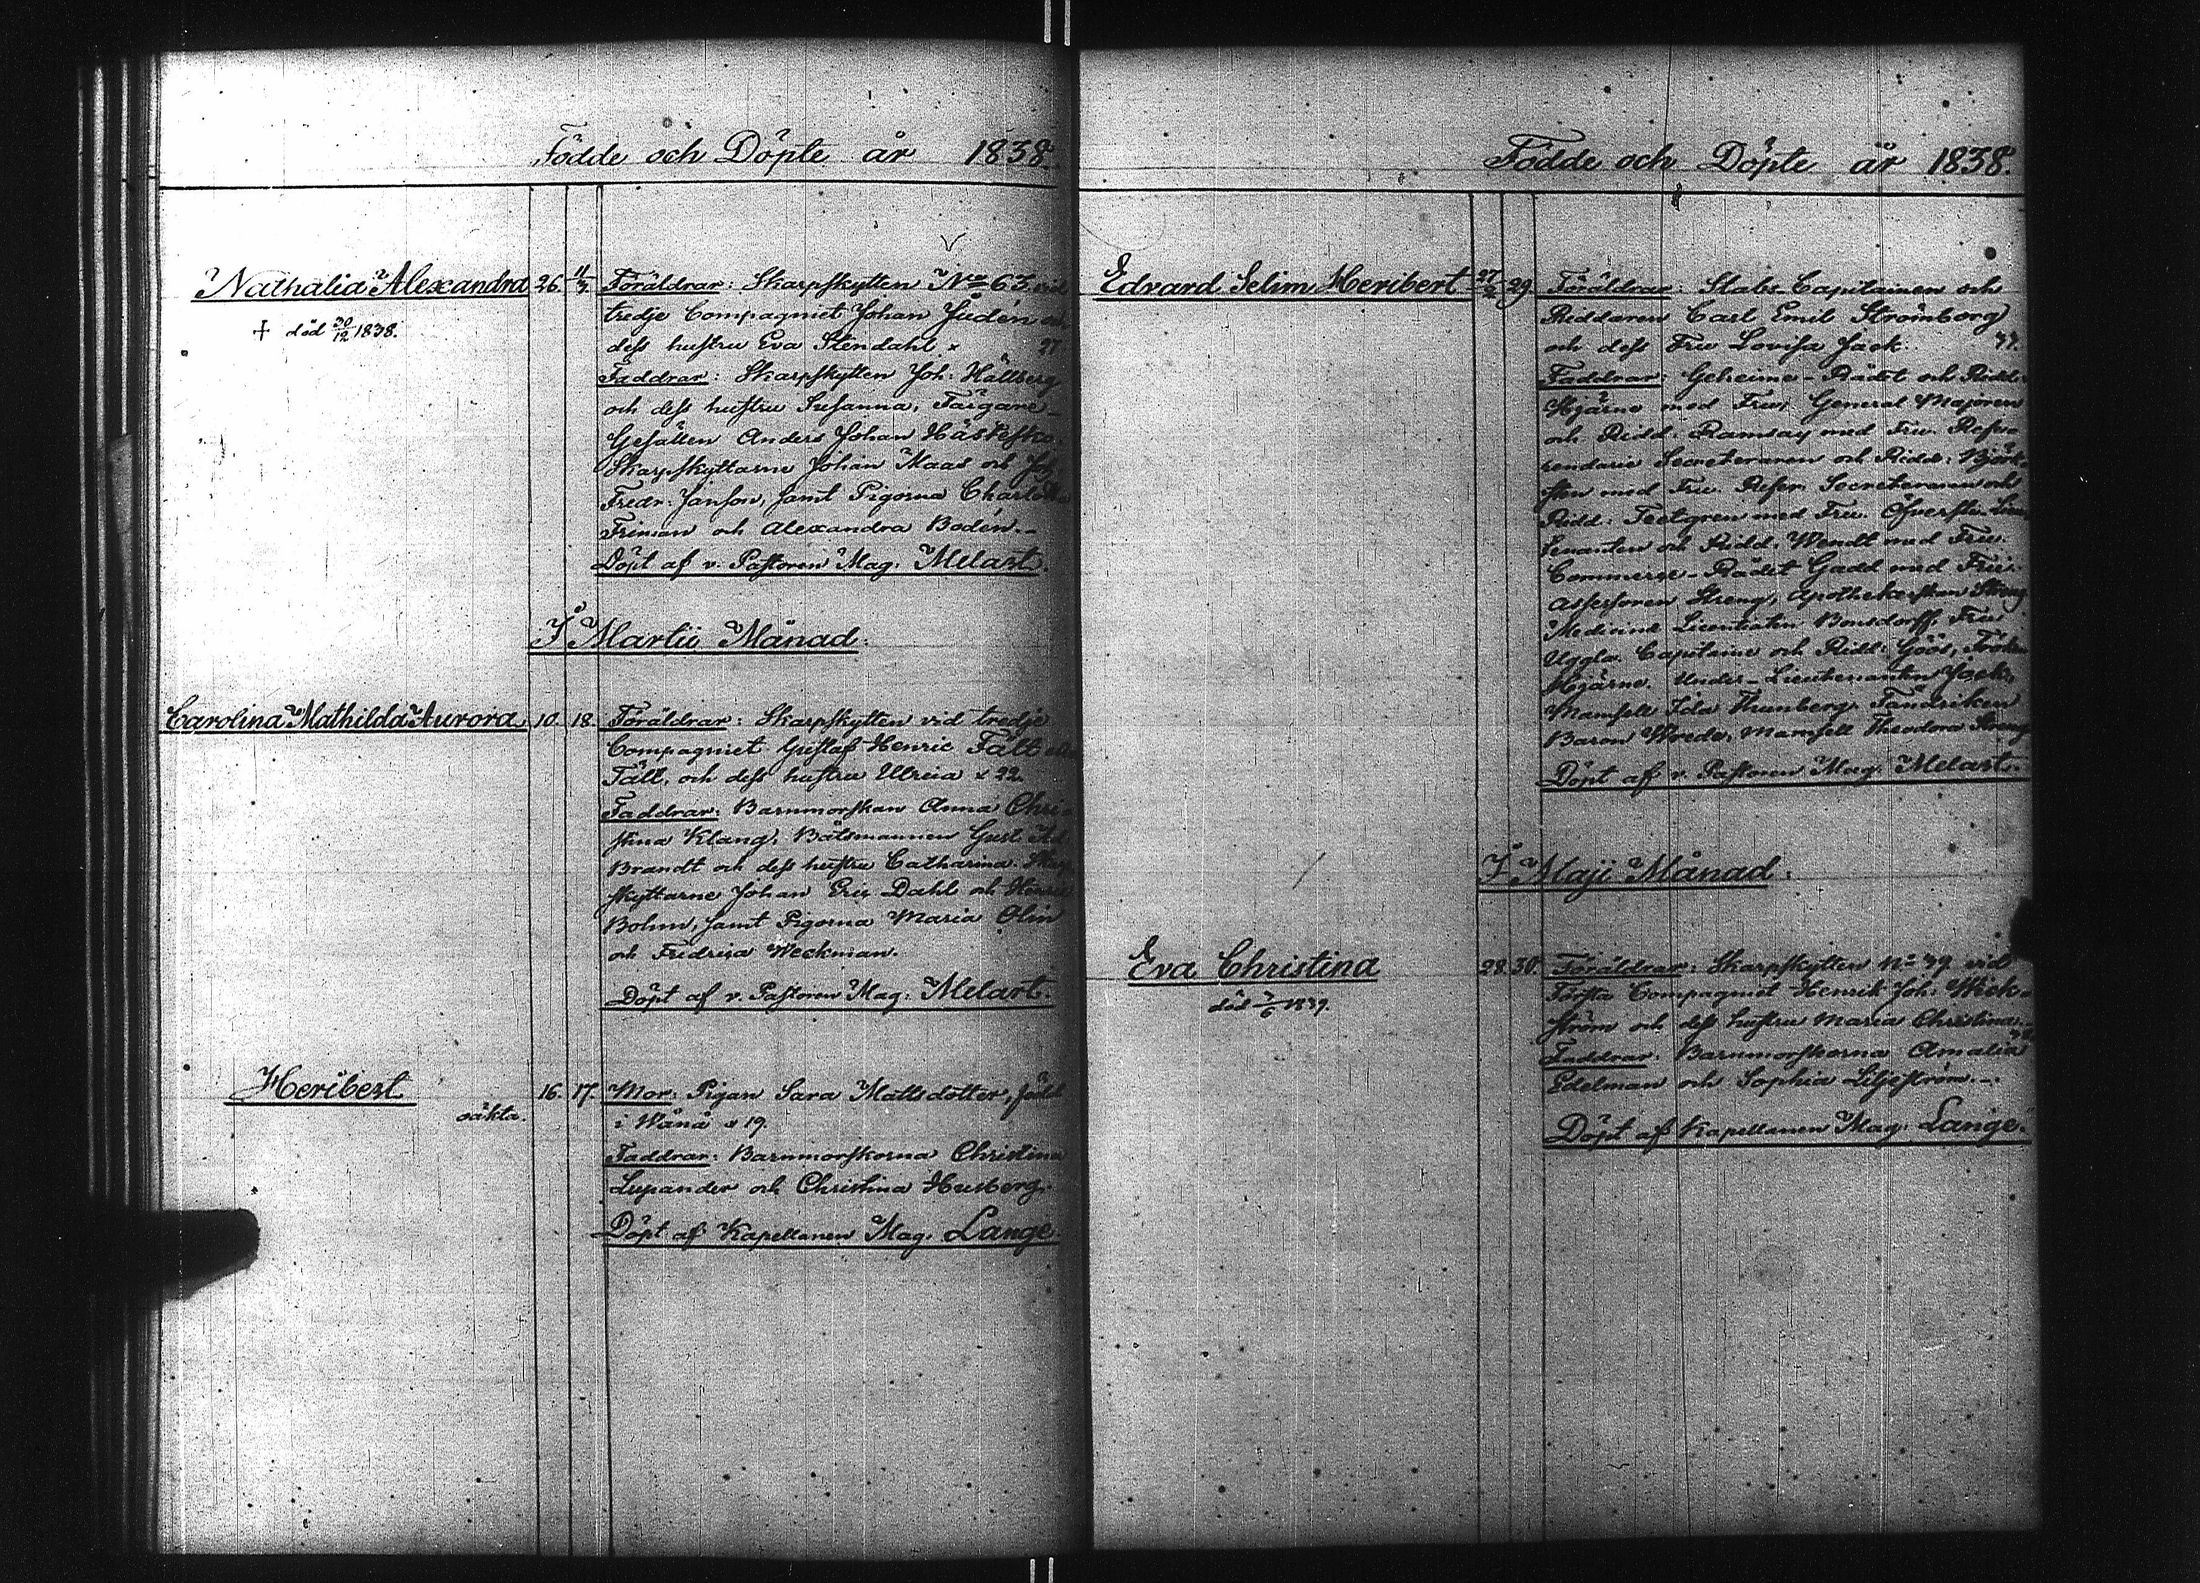 Födde och Döpte år 1838.
Nathalia Alexandra 26. 11/3. Föräldrar: Skarpskytten No 63 vid
† död 30/12 1838.
tredje Compagniet Johan Judén och
dess hustru Eva Stendahl x 27
Faddrar: Skarpskytten Joh: Hällberg
och dess hustru Susanna, Färgare-
Gesällen Anders Johan
Skarpskyttarne Johan Maas och Joh
Fredr. Janson, samt Pigorna Charlotta
Friman och Alexandra Bodén.-
Döpt af v. Pastoren Mag. Melart.
I Martii Månad.
Carolina Mathilda Aurora 10. 18. Föräldrar: Skarpskytten vid tredje
Compagniet Gustaf Henric Fält eller
Täll, och dess hustru Ulrica x 22.
Faddrar: Barnmorskan Anna Chri-
stina Klang, Båtsmannen Gust. Ad.
Brandt och dess hustru Catharina. Skarp-
skyttarne Johan Eric Dahl och Henric
Bohm, samt Pigorna Maria Olin
och Fredrica Weckman.
Döpt af v. Pastoren Mag: Melart.
Heribert 16. 17. Mor: Pigan Sara Mattsdotter, född
oäkta.
i Wånå x 19.
Faddrar: Barnmorskorna Christina
Lupander och Christina Husberg.
Döpt af Kapellanen Mag. Lange
Födde och Döpte år 1838.
Edvard Selim Heribert 27/2 29. Föräldrar: Stabs-Capitainen och
Riddaren Carl Emil Strömborg
och dess Fru Lovisa Jack.
Faddrar: Geheime-Rådet och Ridd:
Hjärne med Fru. General Majoren
och Ridd: Ramsay med Fru. Refe-
rendarie Secreteraren och Ridd: Björk-
sten med Fru. Refer. Secreteraren och
Ridd: Teetgren med Fru. Öfverste Lieu-
tenanten och Ridd: Wendt med Fru.
Commerse-Rådet Gadd med Fru.
Assessoren Streng, Apothekerskan Streng
Medicine Licentiaten Bonsdorff, Fru
Uggla. Capitaine och Ridd: Göös, Fröken
Hjärne. Under-Lieutenanten Jack,
Mamsell Ida Thunberg. Fändriken
Baron Wrede, Mamsell Theodora Streng
Döpt af v. Pastoren Mag. Melart.
I Maji Månad.
Eva Christina 28. 30. Föräldrar: Skarpskytten No 49 vid
död 1839.
Första Compagniet Henrik Joh. Wick-
ström och dess hustru Maria Christina.
Faddrar: Barnmorskorna Amalia
Edelman och Sophia Liljeström.-
Döpt af Kapellanen Mag. Lange.